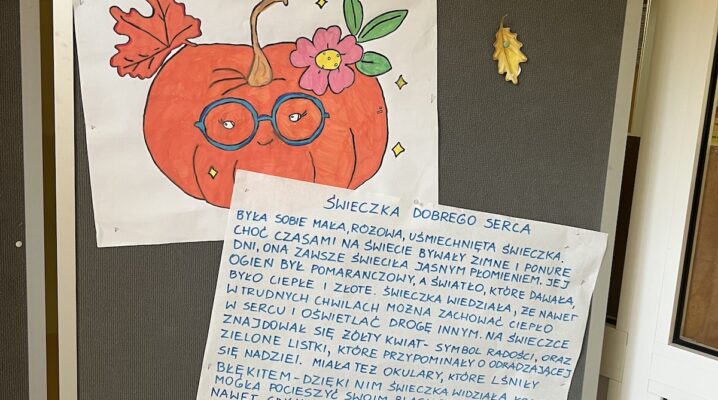 ŚWIECZKA DOBREGO SERCA
BYŁA SOBIE MAŁA, RÓŻOWA, UŚMIECHNIĘTA ŚWIECZKA.
CHOĆ CZASAMI NA ŚWIECIE BYWAŁY ZIMNE I PONURE
DNI, ONA ZAWSZE ŚWIECIŁA JASNYM PŁOMIENIEM. JEJ
OGIEŃ BYŁ POMARAŃCZOWY, A ŚWIATŁO, KTÓRE DAWAŁA,
BYŁO CIEPŁE I ZŁOTE. ŚWIECZKA WIEDZIAŁA, ŻE NAWET
W TRUDNYCH CHWILACH MOŻNA ZACHOWAĆ CIEPŁO
W SERCU I OŚWIETLAĆ DROGĘ INNYM. NA ŚWIECZCE
ZNAJDOWAŁ SIĘ ŻÓŁTY KWIAT- SYMBOL RADOŚCI, ORAZ
ZIELONE LISTKI, KTÓRE PRZYPOMINAŁY O ODRADZAJĄCEJ
SIĘ NADZIEI. MIAŁA TEŻ OKULARY, KTÓRE LŚNIŁY
BŁĘKITEM- DZIĘKI NIM ŚWIECZKA WIDZIAŁA
MOGŁA POCIESZYĆ SWOIM
NAWET